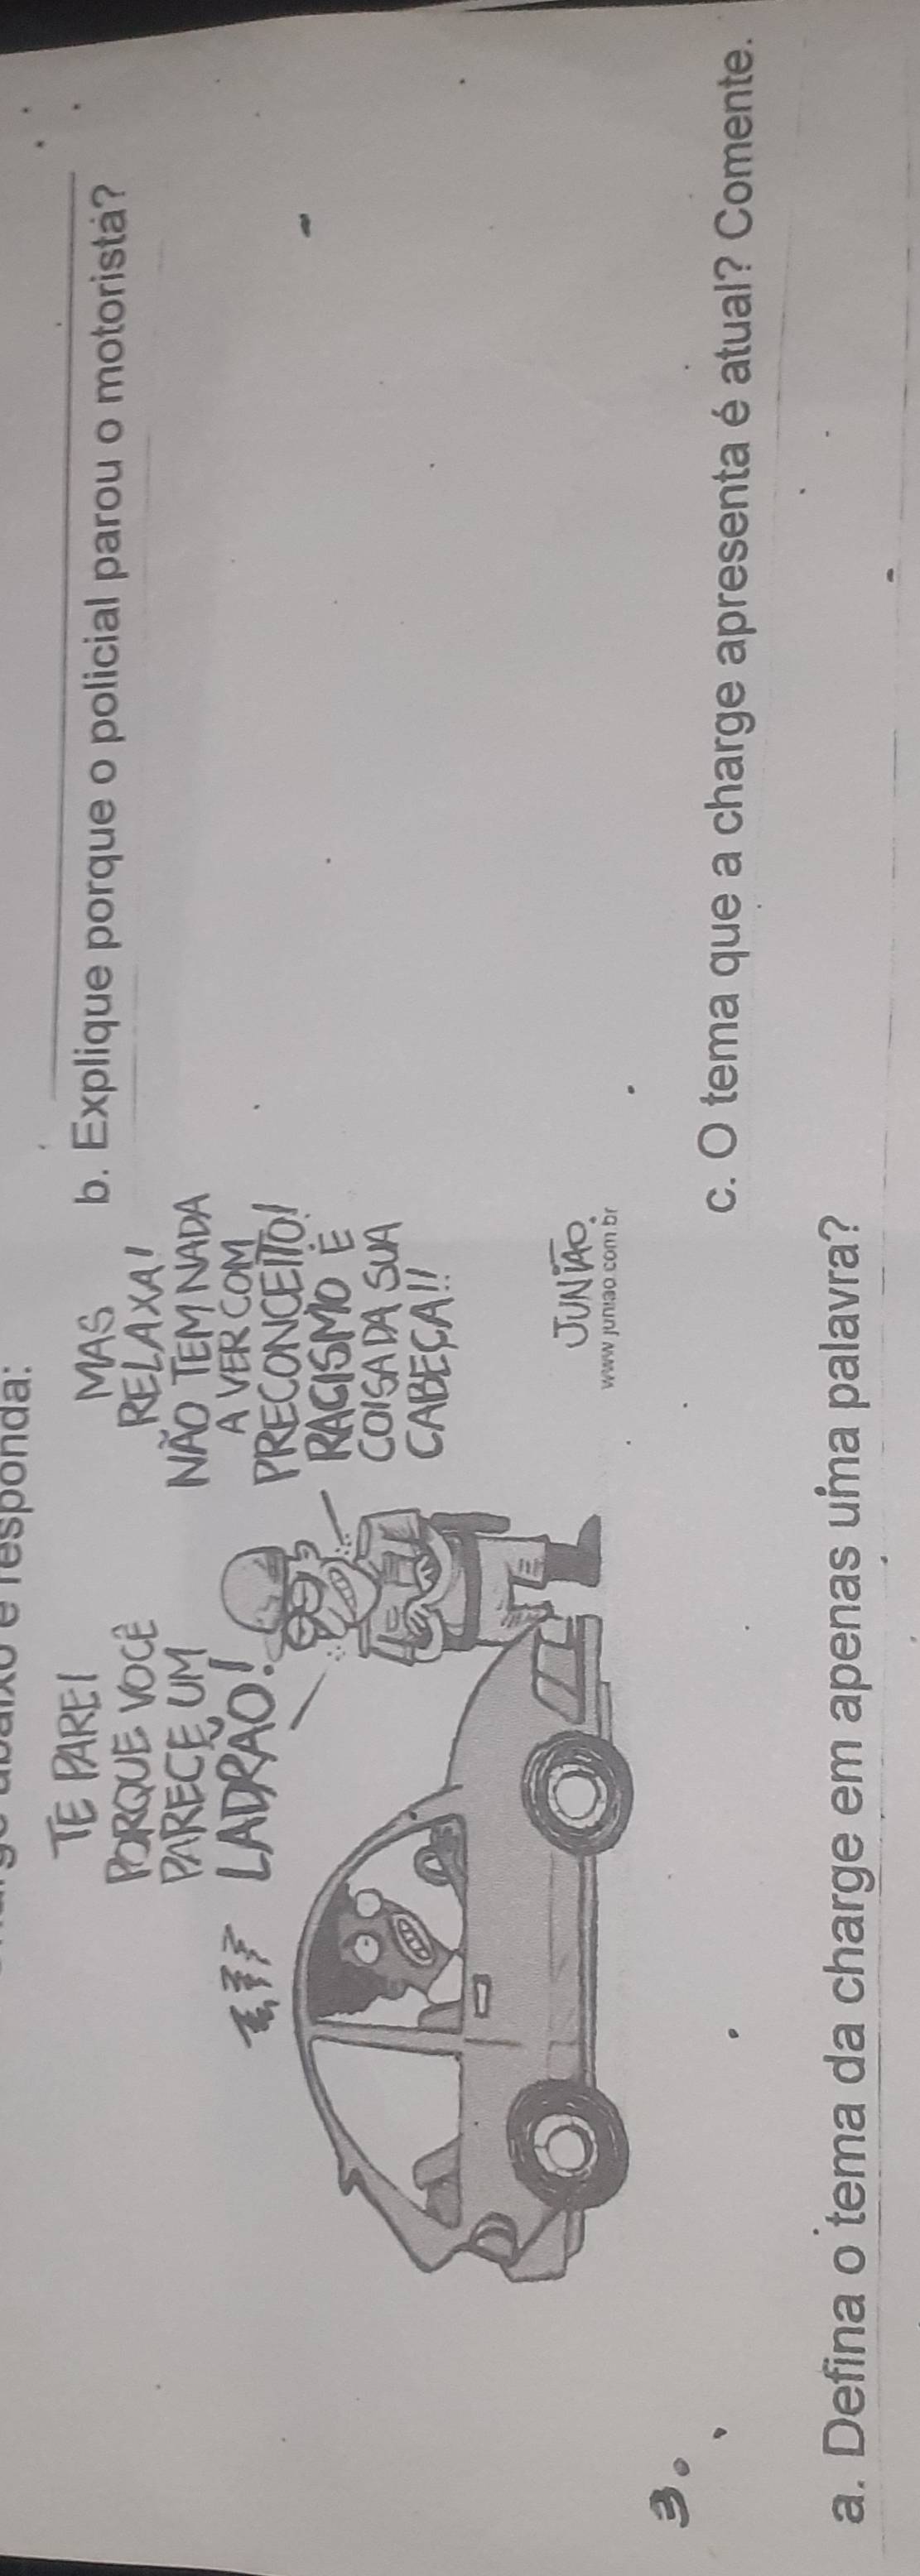 abaixo e responda:
TE PAREI
PORQUE VOCÊ
PARECE UM
LADRÃO!
MAS
RELAXA!
NÃO TEM NADA
A VER COM
PRECONCEITO!
RACISMO É
COISA DA SUA
CABEÇA!!
JUNIÃO.
www.juniao.com.br
3.
a. Defina o tema da charge em apenas uma palavra?
b. Explique porque o policial parou o motorista?
c. O tema que a charge apresenta é atual? Comente.